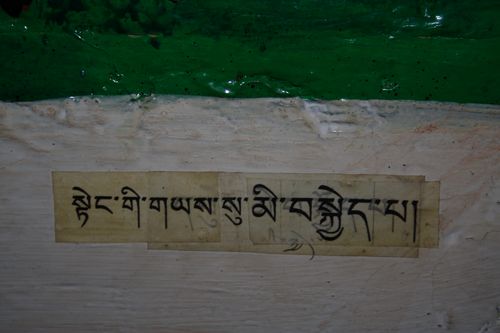 སྟེང་གི་གཡས་སུ་མི་བསྐྱེད་པ།